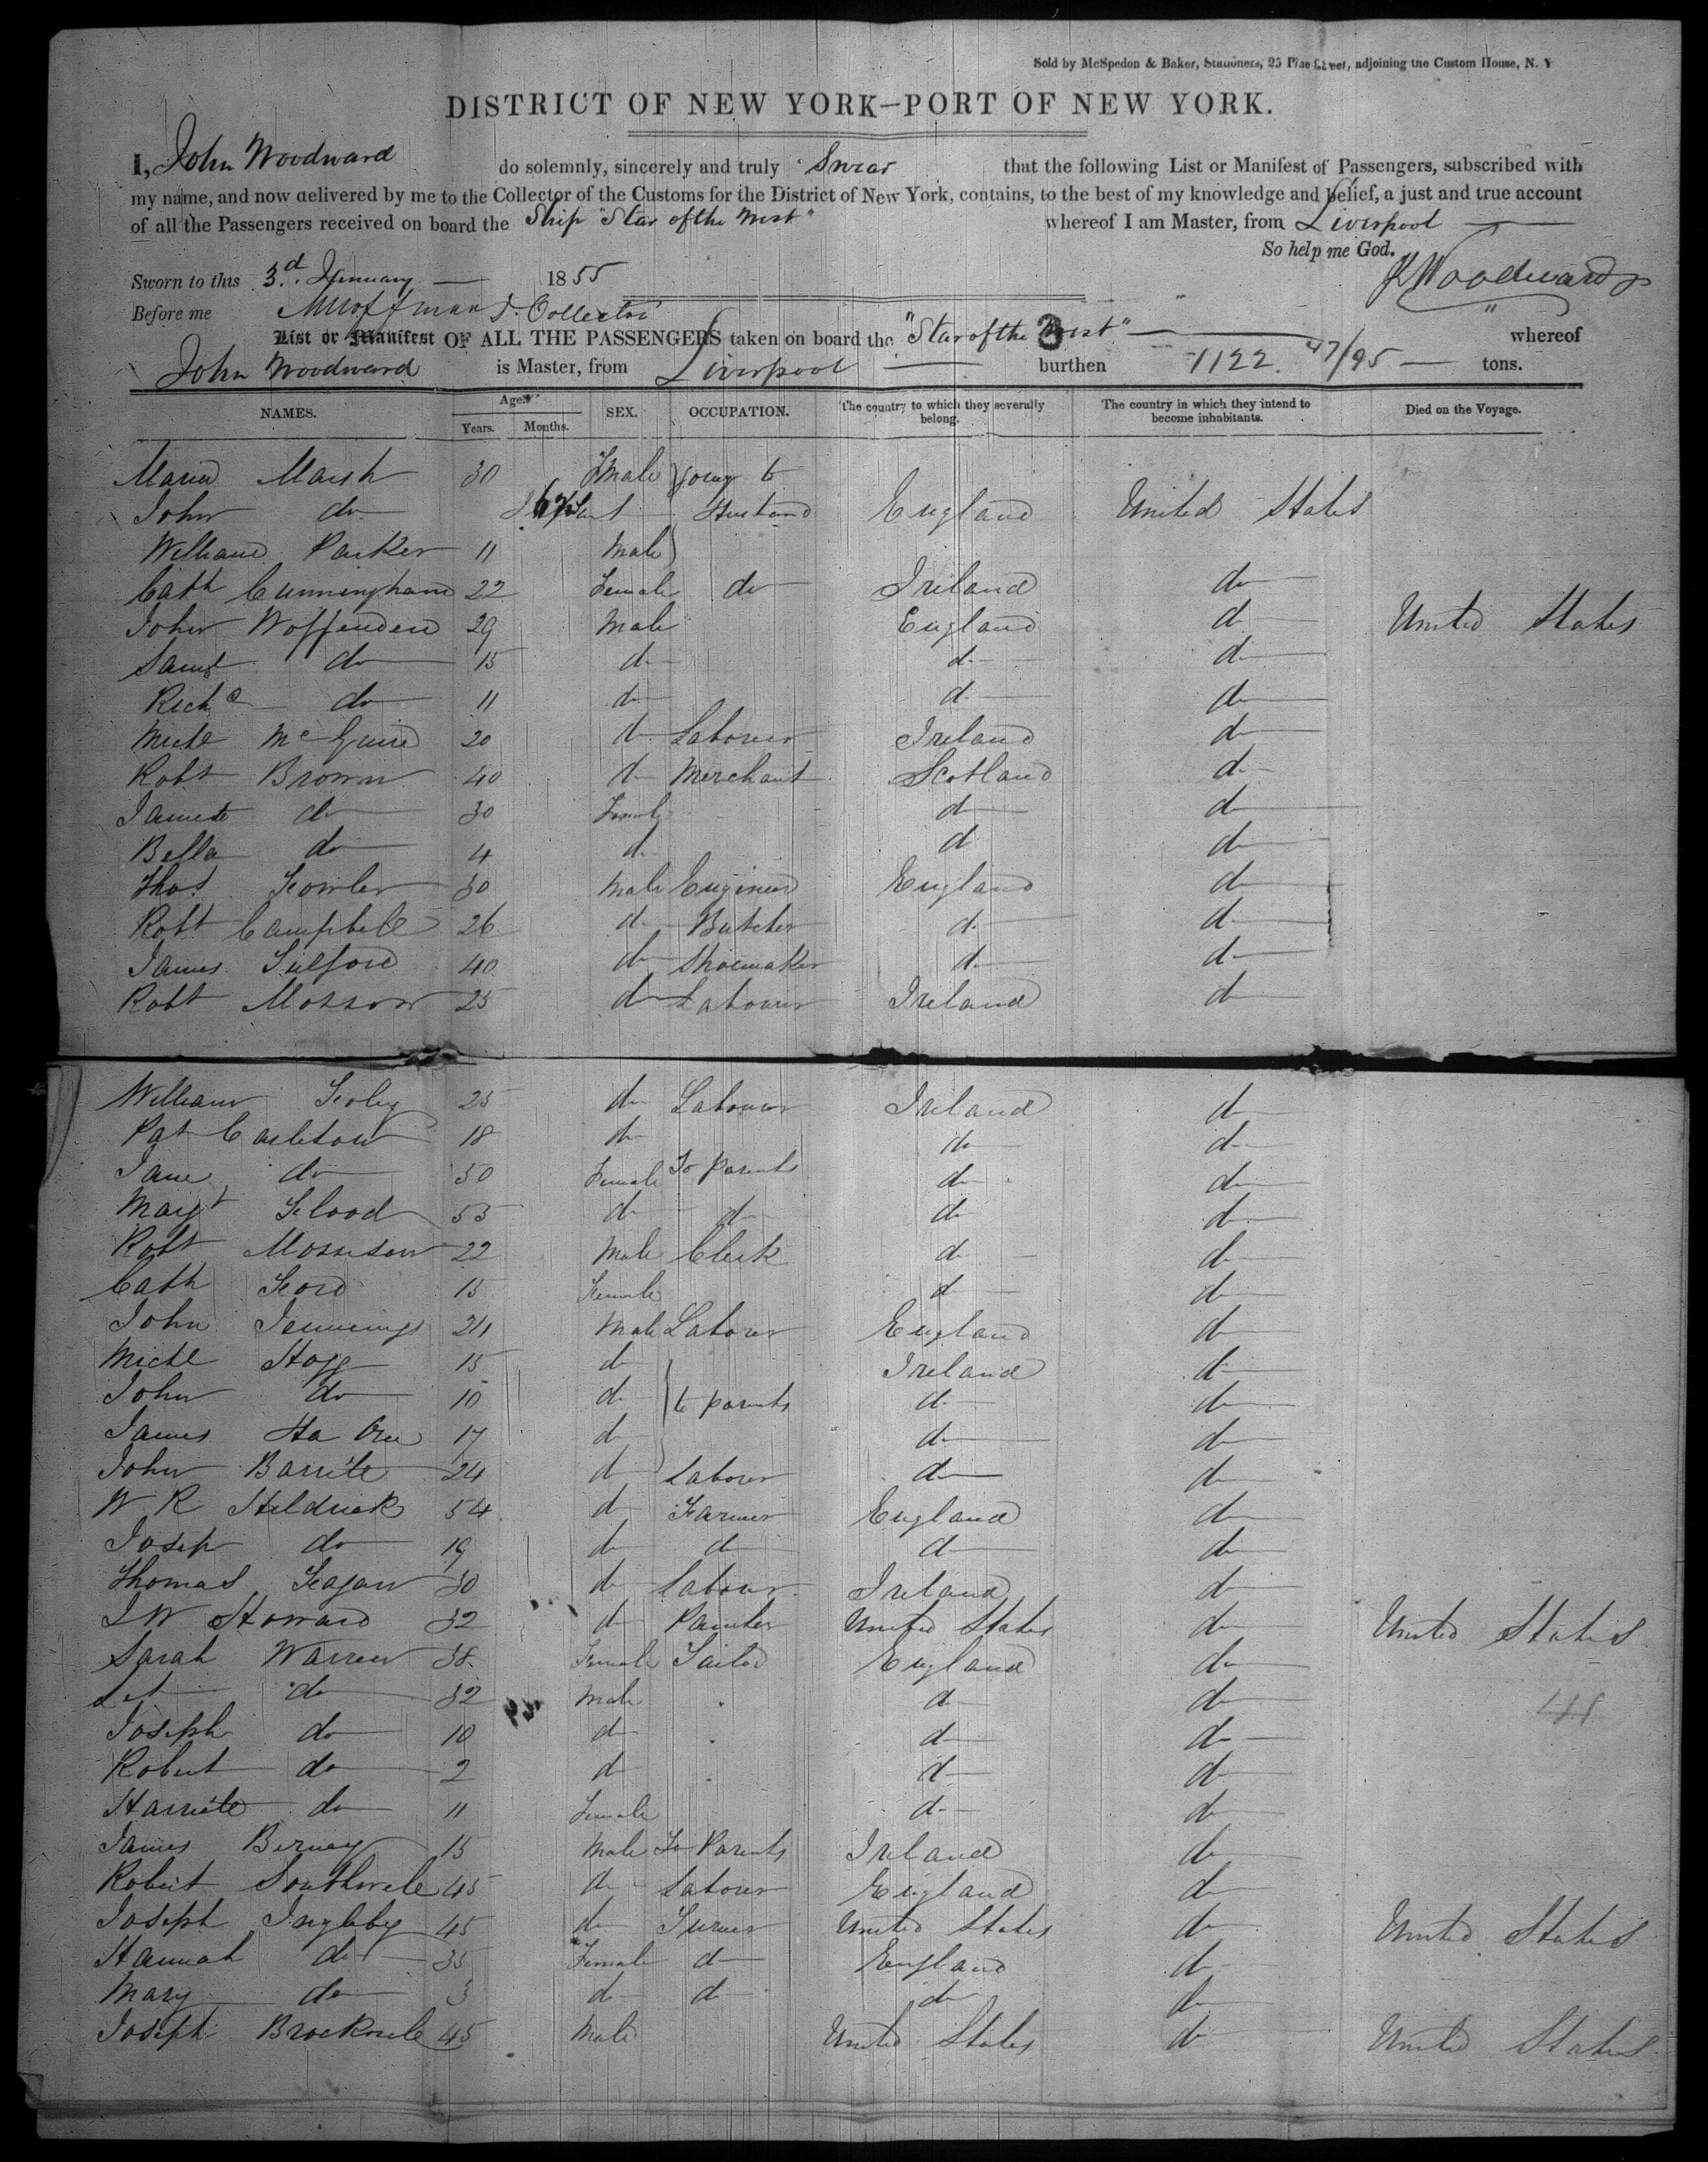 Sold by McSpedon & Baker, Stationers, 25 Pine Street, adjoining the Custom House, N. Y
DISTRICT OF NEW YORK—PORT OF NEW YORK.
I, John Woodward do solemnly, sincerely and truly Swear that the following List or Manifest of Passengers, subscribed with
my name, and now delivered by me to the Collector of the Customs for the District of New York, contains, to the best of my knowledge and belief, a just and true account
of all the Passengers received on board the Ship "Star of the West" whereof I am Master, from Liverpool
So help me God.
Sworn to this 3.d January 1855 J Woodward
Before me Collector
List or Manifest OF ALL THE PASSENGERS taken on board the "Star of the West" whereof
John Woodward is Master, from Liverpool burthen 1122 47/95 tons.
NAMES. Age. Years. Months. SEX. OCCUPATION. The country to which they severally belong. The country in which they intend to become inhabitants. Died on the Voyage.
Maria Marsh 30 Female going to
John do Husband England United States
William Parker 11 Male
Cath Cunningham 22 Female do Ireland do
John Woffenden 29 Male England do United States
Saml do 15 do do do
Richd do 11 do do do
Michl McGuire 20 do Labourer Ireland do
Robt Brown 40 do Merchant Scotland do
Janet do 30 Female do do
Bella do 4 do do do
Thos Fowler 30 Male Engineer England do
Robt Campbell 26 do Butcher do do
James Tulford 40 do Shoemaker do do
Robt Morrow 25 do Labourer Ireland do
William Foley 25 do Labourer Ireland do
Pat Carleton 18 do do do
Jane do 50 Female To Parents do do
Margt Flood 53 do do do do
Robt Morrison 22 Male Clerk do do
Cath Ford 15 Female do do
John Jennings 24 Male Laborer England do
Michl Hogg 15 do Ireland do
John do 10 do to parents do do
James 17 do do do
John Barrite 24 do Laborer do do
W R Heldrick 54 do Farmer England do
Joseph do 19 do do do do
Thomas Fagan 30 do Labour Ireland do
J W Howard 32 do Painter United States do United States
Sarah Warren 38 Female Tailor England do
do 32 Male do do
Joseph do 10 do do do
Robert do 2 do do do
Harriete do 11 Female do do
James Berney 15 Male To Parents Ireland do
Robert Southwele 45 do Labourer England do
Joseph Ingleby 45 do Turner United States do United States
Hannah do 35 Female do England do
Mary do 3 do do do do
Joseph Brocksele 45 Male United States do United States